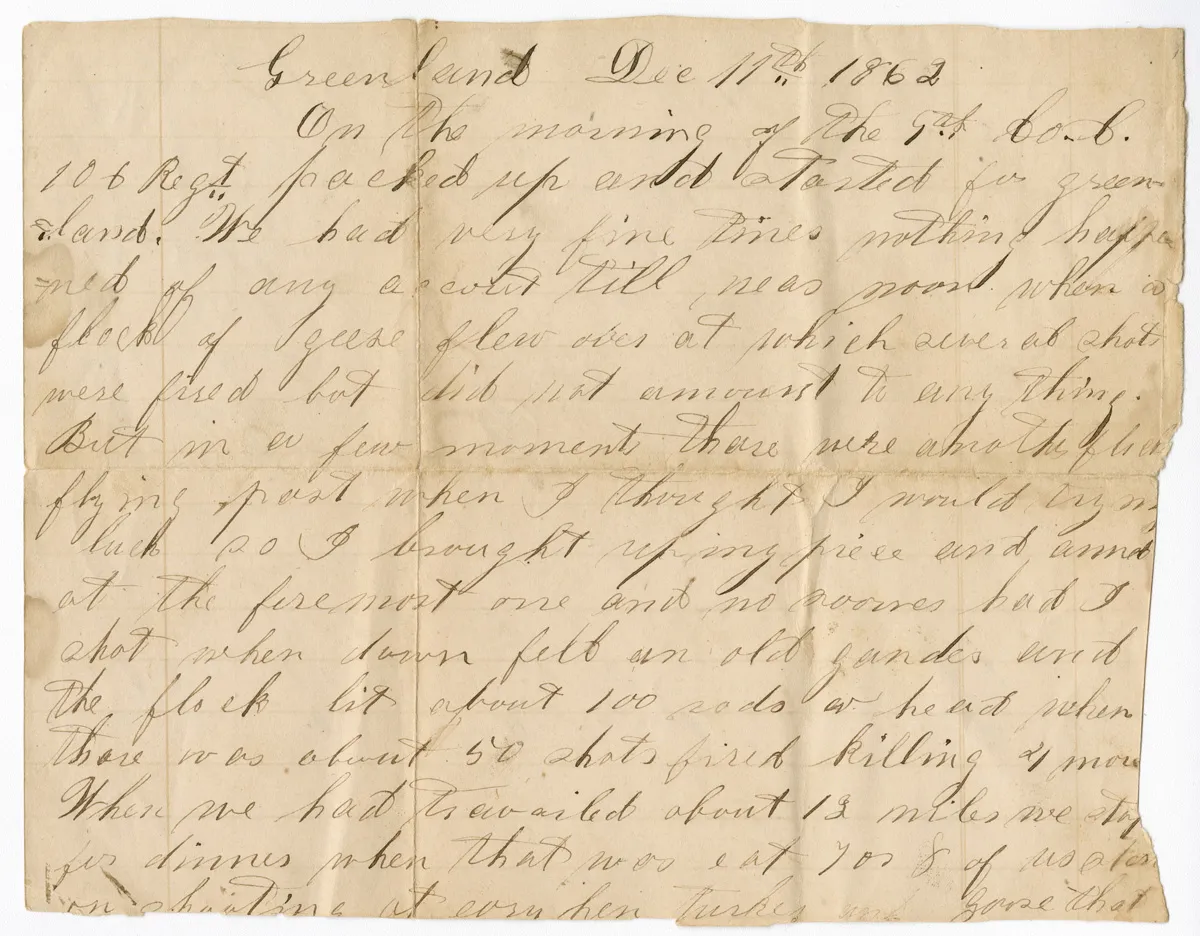 Greenland Dec 11th 1862
On the morning of the 9th Co. C.
106 Regt packed up and started for green-
land. We had very fine times nothing happe
ned of any account till near noon when a
flock of geese flew over at which several shots
were fired but did not amount to any thing.
But in a few moments there were another flock
flying past when I thought I would try my
luck so I brought up my piece and aimed
at the firemost one and no sooner had I
shot when down fell an old gander and
the flock lit about 100 rods a head when
there was about 50 shots fired killing 4 more
When we had travailed about 12 miles we stop
for dinner when that was eat 7 or 8 of us
on shooting at every hen turkey and goose that